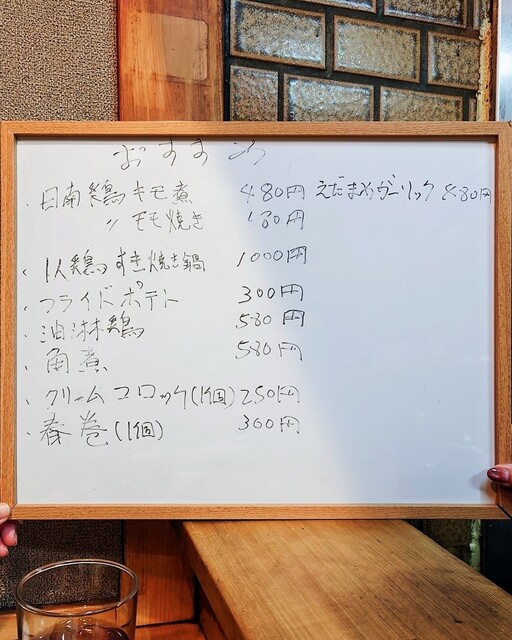 おすすめ
・日南鶏キモ煮 480円
〃 モモ焼き 180円
・1人鶏すき焼き鍋 1000円
・フライドポテト 300円
・油淋鶏 580円
・角煮 580円
・クリームコロッケ(1個) 250円
・春巻(1個) 300円
えだまめガーリック 880円